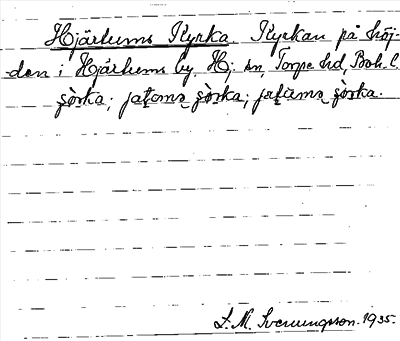 Hjärtums Kyrka Kyrkan på höj-
den i Hjärtums by, Hj. sn, Torpe hd, Boh. l.
şòrka; jaʈoma şòrka; jaʈuma şòrka.
L. M. Svenungsson. 1935.